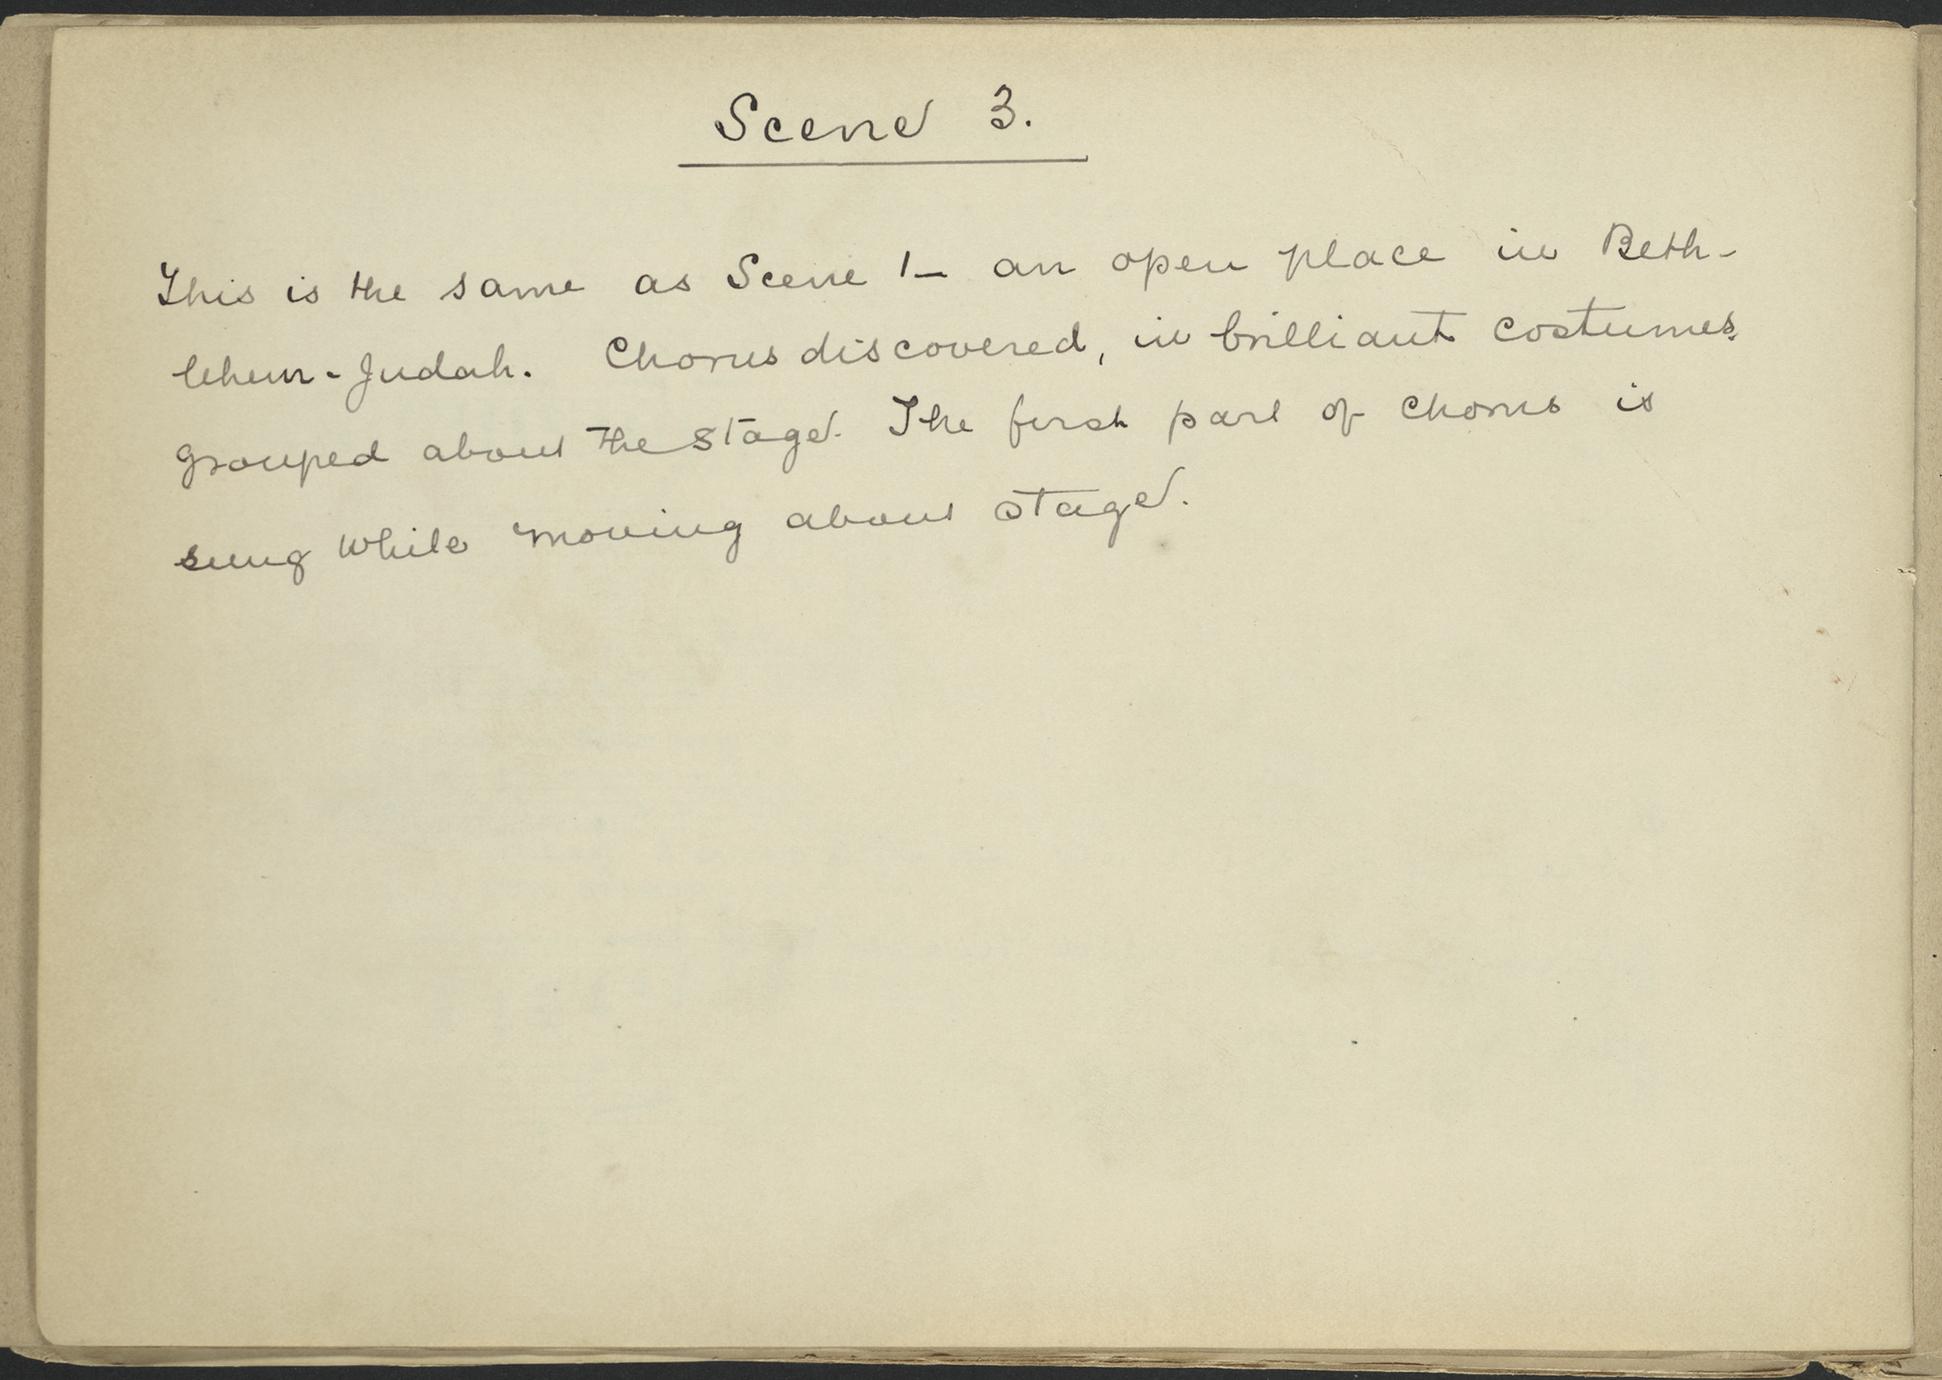 Scene 3.
This is the same as Scene 1 - an open place in Beth-
lehem - Judah. Chorus discovered, in brilliant costumes,
grouped about the stage. The first part of chorus is
sung while moving about stage.